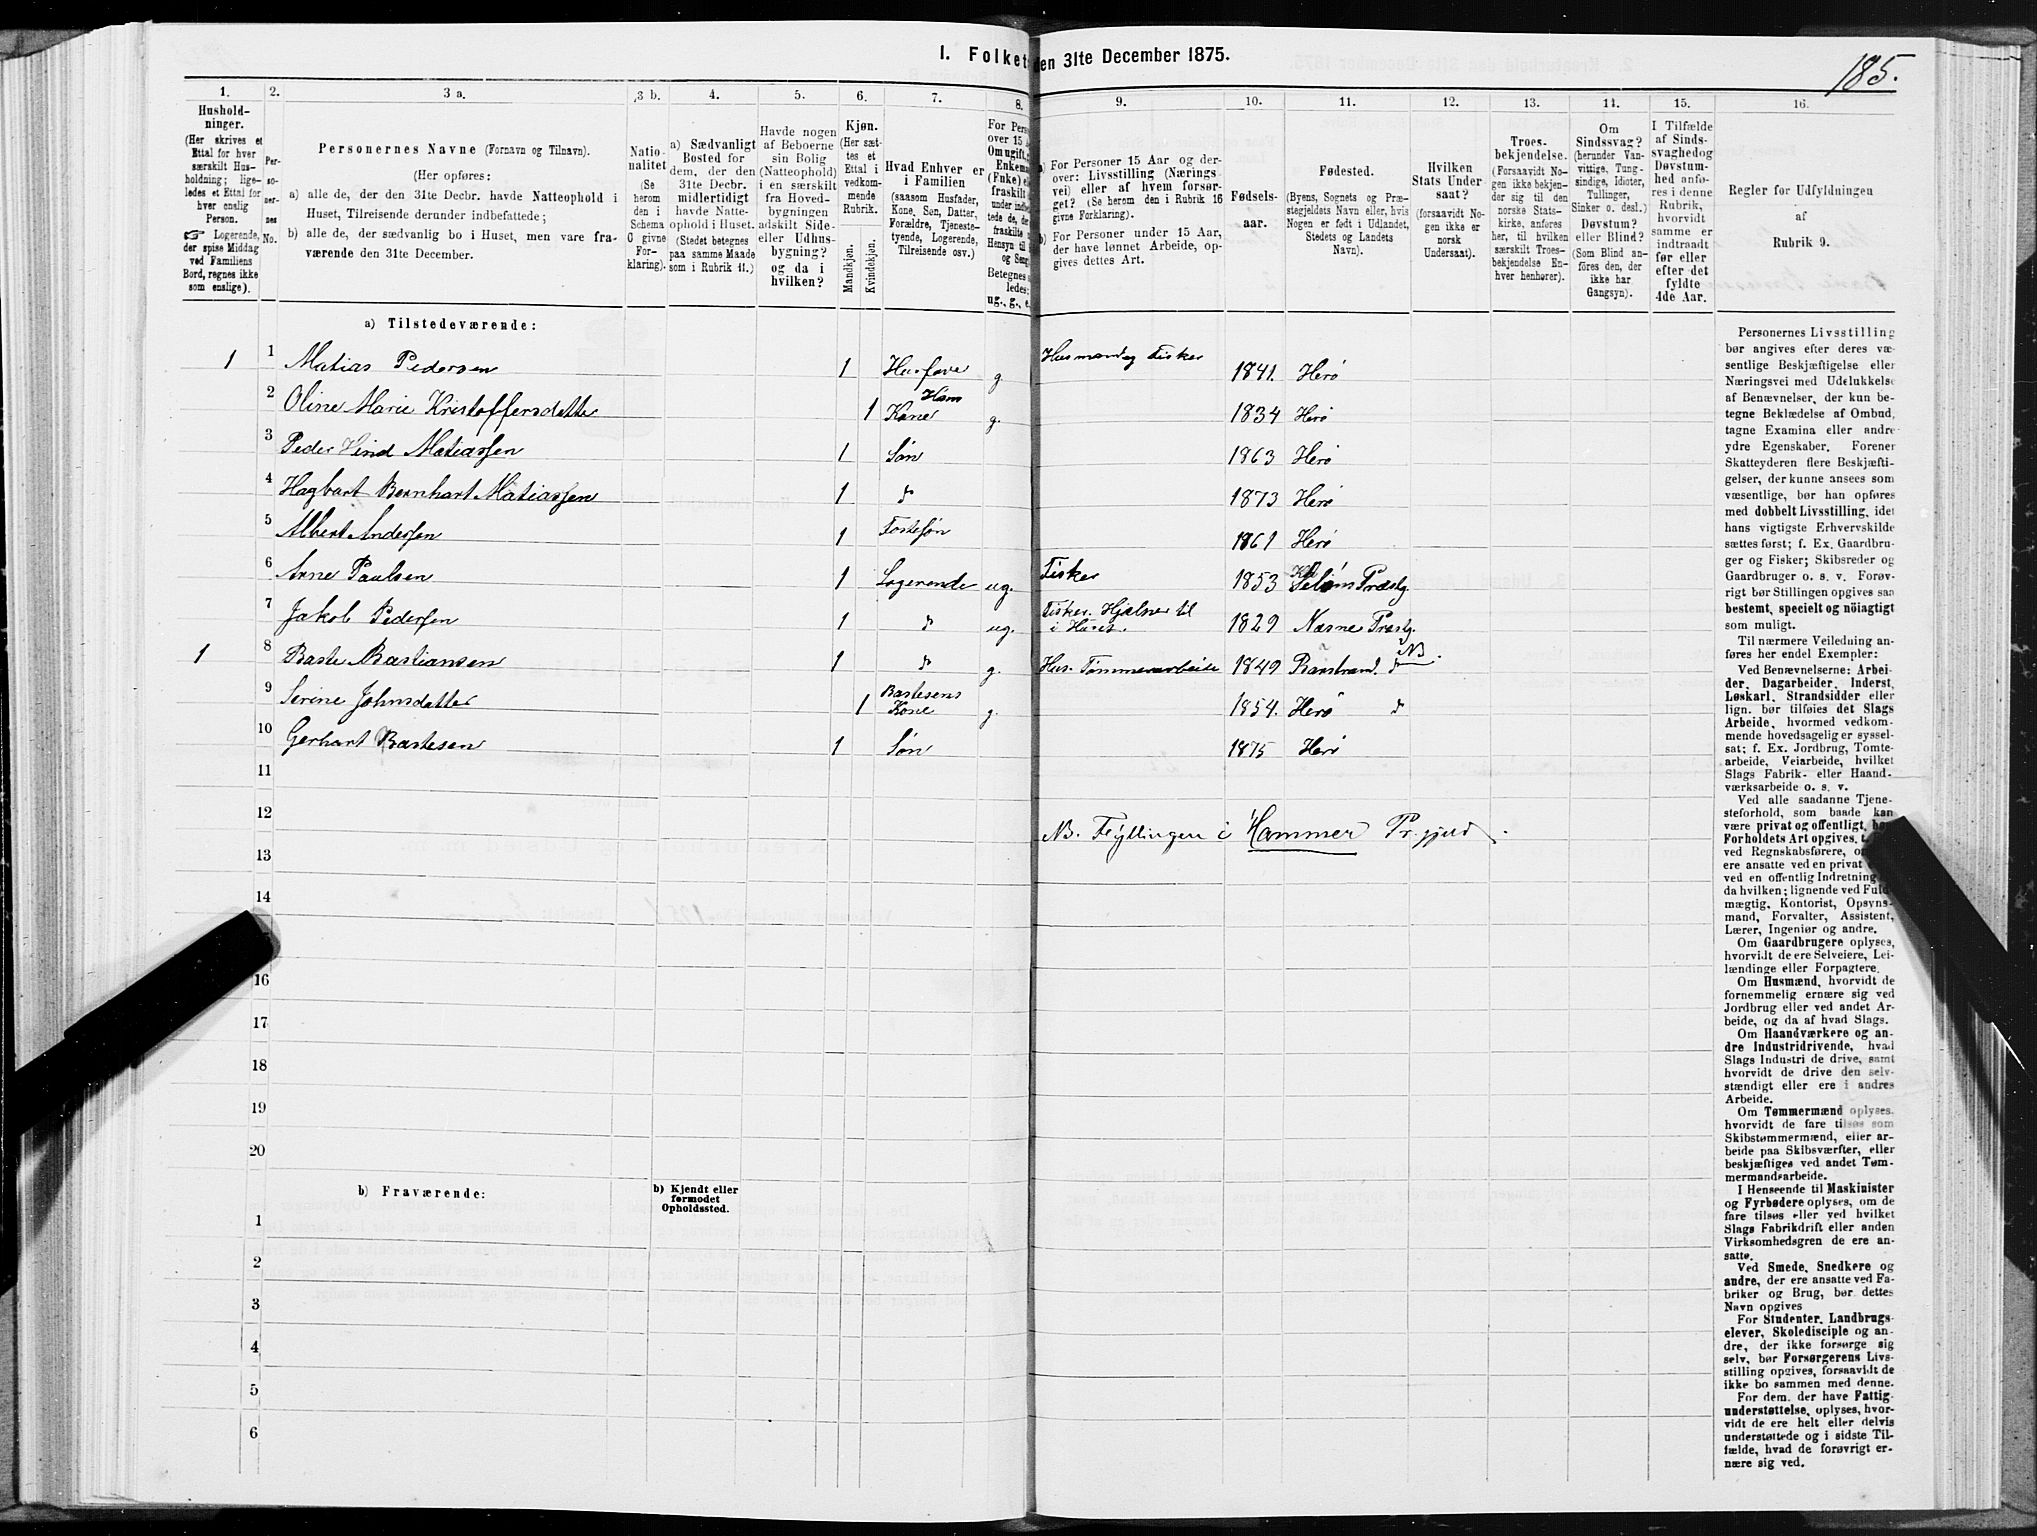 I. Folket den 31te December 1875.
185.
1. 2. 3 a. 3 b. 4. 5. 6. 7. 8. 9. 10. 11. 12. 13. 14. 15. 16.
Hushold-
ninger.
(Her skrives et
Ettal for hver
særskilt Hus-
holdning; lige-
ledes et Ettal for
hver enslig
Person.
☞ Logerende,
der spise Middag
ved Familiens
Bord, regnes ikke
som enslige).
Per-
so-
ner-
nes
No.
Personernes Navne (Fornavn og Tilnavn).
(Her opføres:
a) alle de, der den 31te Decbr. havde Natteophold i
Huset, Tilreisende derunder indbefattede;
b) alle de, der sædvanlig bo i Huset, men vare fra-
værende den 31te December.
Natio-
nalitet
(Se
herom
den i
Schema
C givne
For-
klaring).
a) Sædvanligt
Bosted for
dem, der den
31te Decbr.
midlertidigt
havde Natte-
ophold i Huset.
(Stedet betegnes
paa samme Maade
som i Rubrik 11.)
Havde nogen
af Beboerne
sin Bolig
(Natteophold)
i en særskilt
fra Hoved-
bygningen
adskilt Side-
eller Udhus-
bygning?
og da i
hvilken?
Kjøn.
(Her sæt-
tes et
Ettal i
vedkom-
mende
Rubrik.
Mandkjøn.
Kvindekjøn.
Hvad Enhver er
i Familien
(saasom Husfader,
Kone, Søn, Datter,
Forældre, Tjeneste-
tyende, Logerende,
Tilreisende osv.)
For Pers
over 15
Om ugift,
Enkem
(Fuke)
fraskilt
Betegnes
ledes:
ug., g., e.
a) For Personer 15 Aar og der-
over: Livsstilling (Nærings-
vei) eller af hvem forsør-
get? (Se herom den i Rubrik 16
givne Forklaring).
b) For Personer under 15 Aar,
der have lønnet Arbeide, op-
gives dettes Art.
Fødsels-
aar.
Fødested.
(Byens, Sognets og Præ-
stegjeldets Navn eller, hvis
Nogen er født i Udlandet,
Stedets og Landets
Navn).
Hvilken
Stats Under
saat?
(forsaavidt No-
gen ikke er
norsk
Undersaat).
Troes-
bekjendelse.
(Forsaavidt No-
gen ikke bekjen-
der sig til den
norske Stats-
kirke, anføres
her, til hvilken
særskilt Troes-
bekjendelse En-
hver henhører).
Om
Sindssvag?
(herunder Van-
vittige, Tung-
sindige, Idioter,
Tullinger,
Sinker o. desl.)
Døvstum?
eller Blind?
(Som Blind an-
føres den, der
ikke har
Gangsyn).
I Tilfælde
af Sinds-
svaghed og
Døvstum-
hed anfø-
res i denne
Rubrik,
hvorvidt
samme er
indtraadt
før eller
efter det
fyldte
4de Aar.
Regler for Udfyldningen
af
Rubrik 9.
a) Tilstedeværende:
1 1 Matias Pedersen 1 Husfave g. Husmand og Fisker 1841. Herø
2 Oline Marie Kristoffersdatter 1 Hans Kone g. 1834 Herø
3 Peder Hind Matiassen 1 Søn 1863 Herø
4 Hagbart Bernhart Matiassen 1 d 1873 Herø
5 Albert Andersen 1 Fostesøn 1861 Herø
6 Arne Paulsen 1 Logerende ug. Fisker 1853 Præstg.
7 Jakob Pedersen 1 d ug. Fisker. Hjælper til i Huset. 1829 Næsne Præstg.
1 8 Baste Bastiansen 1 d g. Hus. Tømmerarbeide 1849 d NB.
9 Serine Johnsdatter 1 Bastesens Kone g. 1854. Herø d
10 Gerhart Bastesen 1 Søn 1875 Herø
11
12
NB. Fyllingen i Hammer Pr.gjeld.
13
14
16
17
18
19
20
b) Fraværende:
b) Kjendt eller
formodet
Opholdssted.
1
2
3
4
5
6
Personernes Livsstilling
bør angives efter deres væ-
sentlige Beskjæftigelse eller
Næringsvei med Udelukkelse
af Benævnelser, der kun be-
tegne Beklædelse af Ombud,
tagne Examina eller andre
ydre Egenskaber. Forener
Skatteyderen flere Beskjæfti-
gelser, der kunne ansees som
væsentlige, bør han opføres
med dobbelt Livsstilling, idet
hans vigtigste Erhvervskilde
sættes først; f. Ex. Gaardbru-
ger og Fisker; Skibsreder og
Gaardbruger o. s. v. Forøv-
rigt bør Stillingen opgives saa
bestemt, specielt og nöiagtigt
som muligt.
Til nærmere Veiledning an-
føres her endel Exempler:
Ved Benævnelserne: Arbei-
der, Dagarbeider, Inderst,
Løskarl, Strandsidder eller
lign. bør tilføies det Slags
Arbeide, hvormed vedkom-
mende hovedsagelig er syssel-
sat; f. Ex. Jordbrug, Tomte-
arbeide, Veiarbeide, hvilket
Slags Fabrik- eller Haand-
værksarbeide o. s. v.
Ved alle saadanne Tjene-
steforhold, som baade kan
være privat og offentligt, bør
Forholdets Art opgives,
ved Regnskabsførere, om
ere ansatte ved en privat
ved en offentlig Indretning
da hvilken; lignende ved Fuld-
mægtig, Kontorist, Opsyns-
mand, Forvalter, Assistent,
Lærer, Ingeniør og andre.
Om Gaardbrugere oplyses,
hvorvidt de ere Selveiere, Lei-
lændinge eller Forpagtere.
Om Husmænd, hvorvidt de
fornemmelig ernære sig ved
Jordbrug eller ved andet Ar-
beide, og da af hvad Slags.
Om Haandværkere og an-
dre Industridrivende, hvad
Slags Industri de drive, samt
hvorvidt de drive den selv-
stændigt eller ere i andres
Arbeide.
Om Tømmermænd oplyses,
hvorvidt de fare tilsøs som
Skibstømmermænd, eller ar-
beide paa Skibsværfter, eller
beskjæftiges ved andet Tøm-
mermandsarbeide.
I Henseende til Maskinister
og Fyrbødere oplyses, om de
fare tilsøs eller ved hvilket
Slags Fabrikdrift eller anden
Virksomhedsgren de ere an-
satte.
Ved Smede, Snedkere og
andre, der ere ansatte ved Fa-
briker og Brug, bør dettes
Navn opgives
For Studenter, Landbrugs-
elever, Skoledisciple og an-
dre, der ikke forsørge sig
selv, bør Forsørgerens Livs-
stilling opgives, forsaavidt de
ikke bo sammen med denne.
For dem, der have Fattig-
understøttelse, oplyses, hvor-
vidt de ere helt eller delvis
understøttede og i sidste Til-
fælde, hvad de forøvrigt er-
nære sig ved.